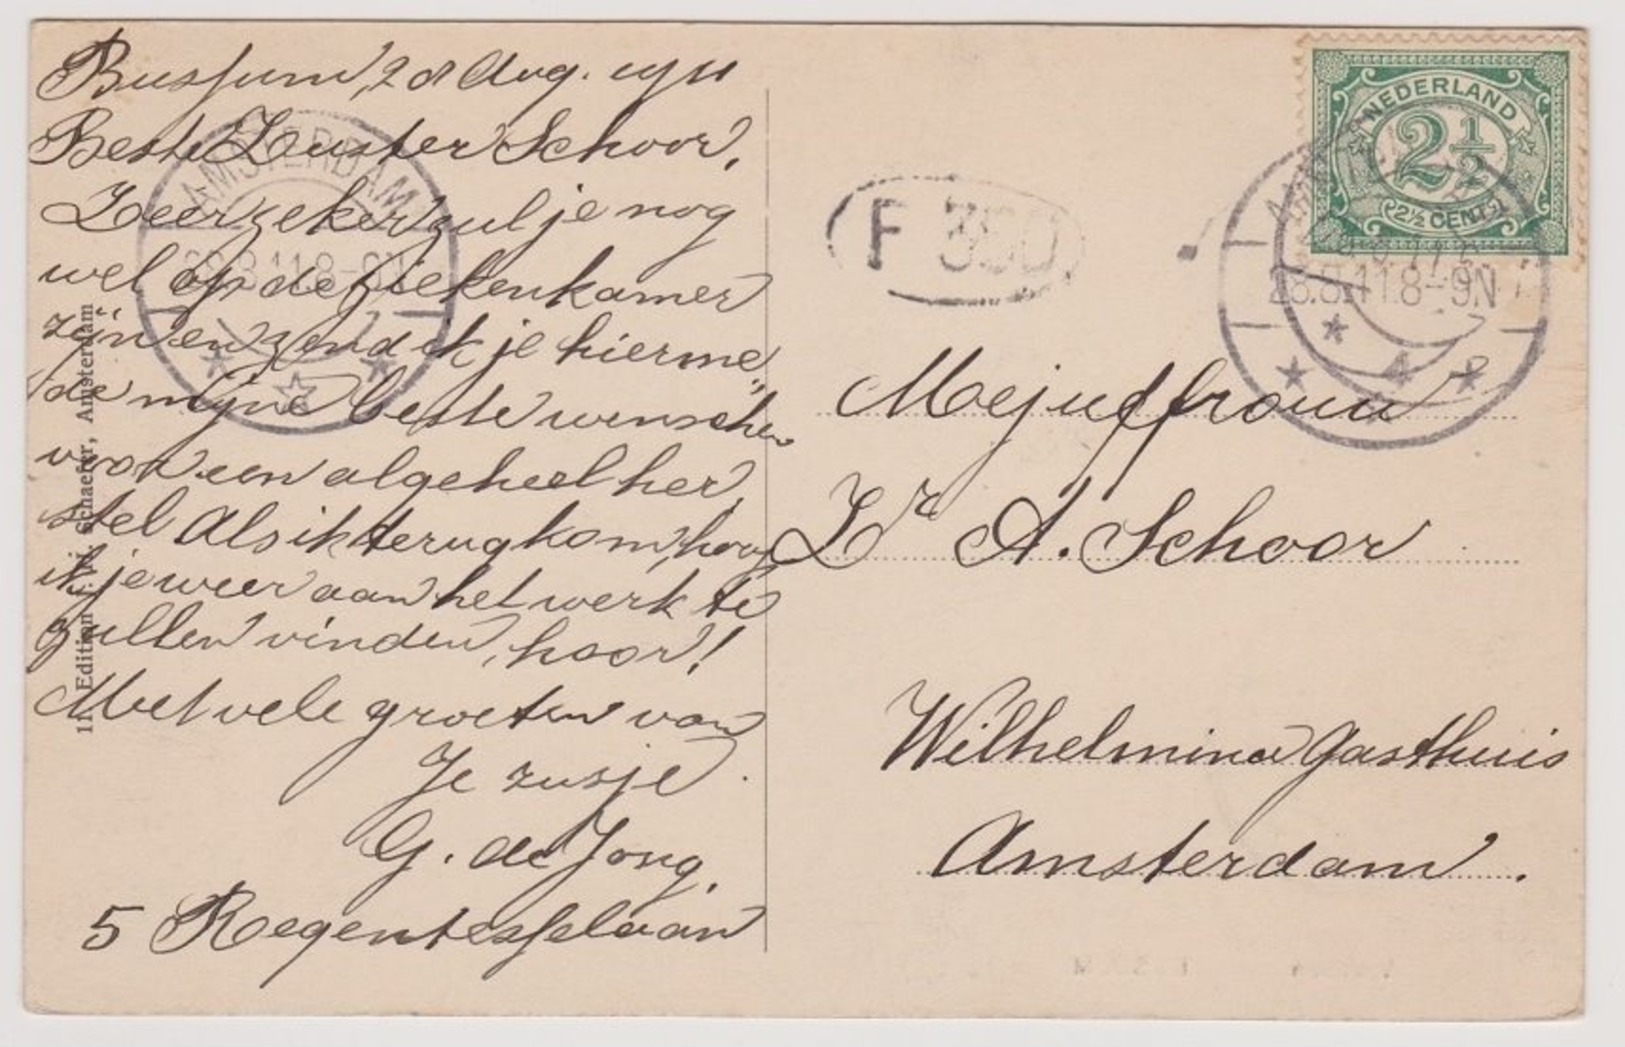 Bussum, 28 Aug. 1911
Beste Zuster Schoor,
Zeer zeker zul je nog
wel op de ziekenkamer
zijn en zend ik je hierme„
de mijne beste wenschen
voor een algeheel her„
stel Als ik terug kom, hoop
ik je weer aan het werk te
zullen vinden, hoor!
Met vele groeten van
Je zusje.
G. de Jong.
5 Regentesselaan
11 Edition Schaefer, Amsterdam
AMSTERDAM
28.8.11.8-9N
F 350
NEDERLAND
2½
2½ CENT
28.8.11.8-9N
Mejuffrouw
Zr A. Schoor
Wilhelmina Gasthuis
Amsterdam.